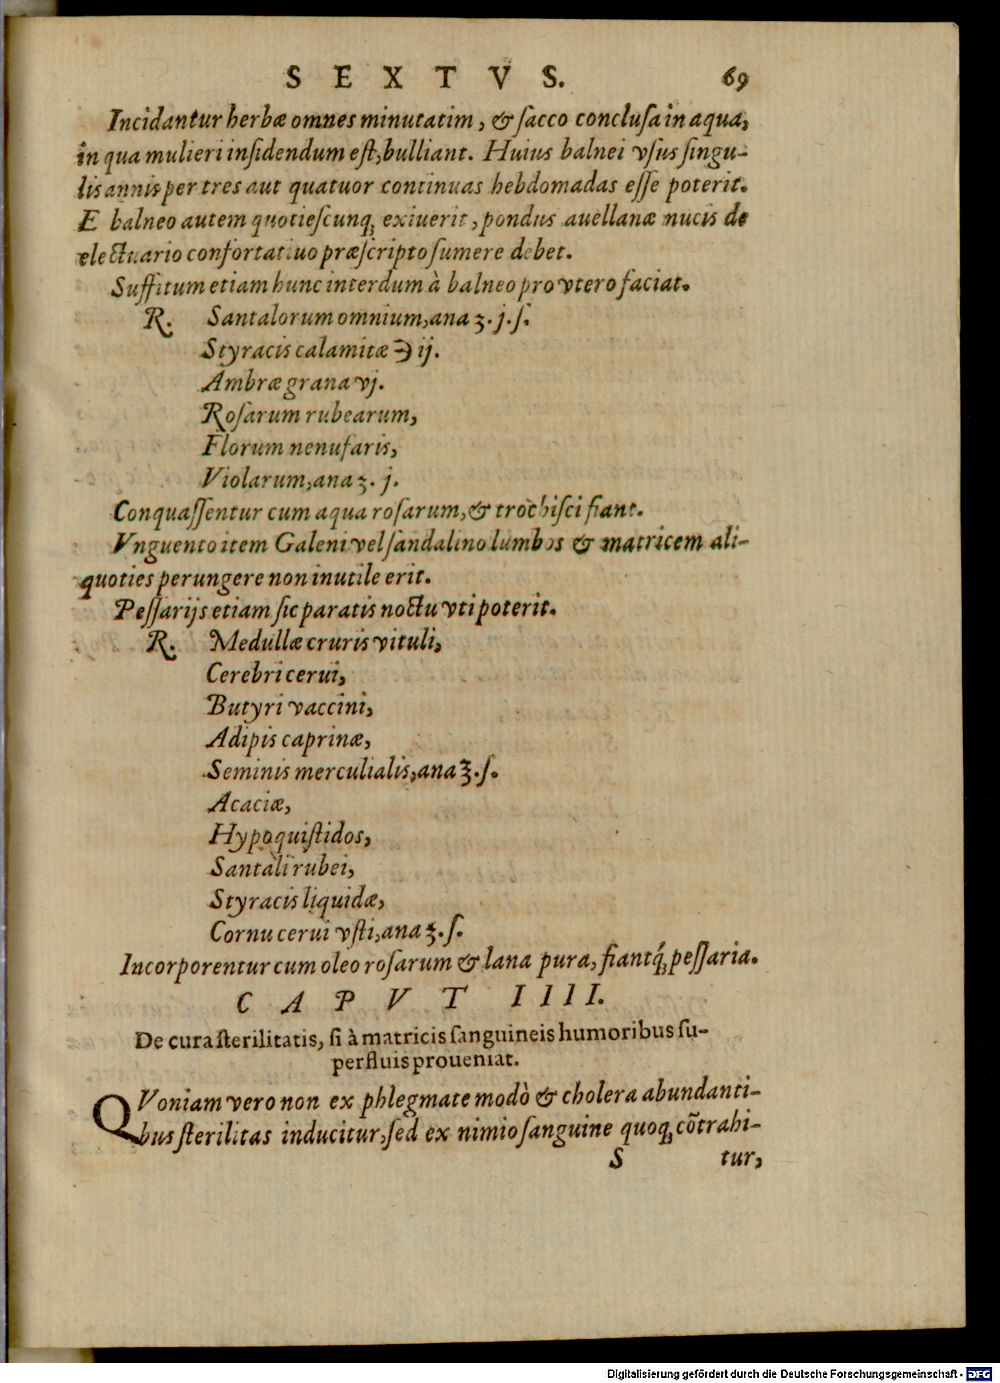 SEXTVS. 69
Incidantur herbæ omnes minutatim, & ſacco concluſa in aqua,
in qua mulieri inſidendum eſt, bulliant. Huius balnei vſus ſingu-
lis annis per tres aut quatuor continuas hebdomadas eſſe poterit.
E balneo autem quotieſcunq; exiuerit, pondus auellanæ nucis de
electuario confortatiuo præſcripto ſumere debet.
Suffitum etiam hunc interdum à balneo pro vtero faciat.
R. Santalorum omnium, ana ʒ. j. ſ.
Styracis calamitæ ℈ ij.
Ambræ grana vj.
Roſarum rubearum,
Florum nenufaris,
Violarum, ana ʒ. j.
Conquaſſentur cum aqua roſarum, & trochiſci fiant.
Vnguento item Galeni vel ſandalino lumbos & matricem ali-
quoties perungere non inutile erit.
Peſſarijs etiam ſic paratis noctu vti poterit.
R. Medullæ cruris vituli,
Cerebri cerui,
Butyri vaccini,
Adipis caprinæ,
Seminis merculialis, ana ℥. ſ.
Acaciæ,
Hypoquiſtidos,
Santali rubei,
Styracis liquidæ,
Cornu cerui vſti, ana ʒ. ſ.
Incorporentur cum oleo roſarum & lana pura, fiantq́; peſſaria.
CAPVT IIII.
De cura ſterilitatis, ſi à matricis ſanguineis humoribus ſu-
perfluis proueniat.
QVoniam vero non ex phlegmate modò & cholera abundanti-
bus ſterilitas inducitur, ſed ex nimio ſanguine quoq; cõtrahi-
S tur,
Digitalisierung gefördert durch die Deutsche Forschungsgemeinschaft - DFG